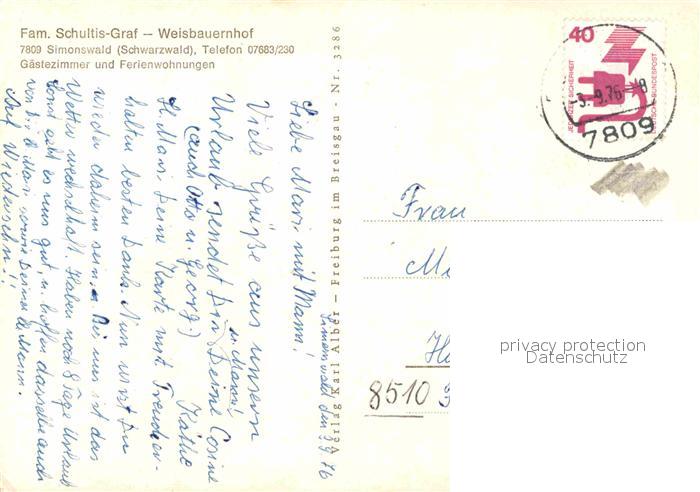 Fam. Schultis-Graf — Weisbauernhof
7809 Simonswald (Schwarzwald), Telefon 07683/230
Gästezimmer und Ferienwohnungen
Simonswald den 3.9.76
Liebe Mari mit Mama!
Viele Grüße aus unsern
Urlaub sendet Dir, Deine Cosine
u. Mama!
(auch Otto u. Georg.) Käthe
Mari Deine Karte mit Freuden er-
halten besten Dank. Nun wirst Du
wieder daheim sein. Bei uns ist das
Wetter wechselhaft. Haben noch 8 Tage Urlaub
sonst geht es uns gut, u. hoffen dasselbe auch
von Dir Mari sowie Deiner lb. Mama.
Auf Wiedersehn!!
Verlag Karl Alber — Freiburg im Breisgau Nr. 3286
40
JEDERZEIT SICHERHEIT
DEUTSCHE BUNDESPOST
-3.9.76-8
7809
Frau
8510
privacy protection
Datenschutz